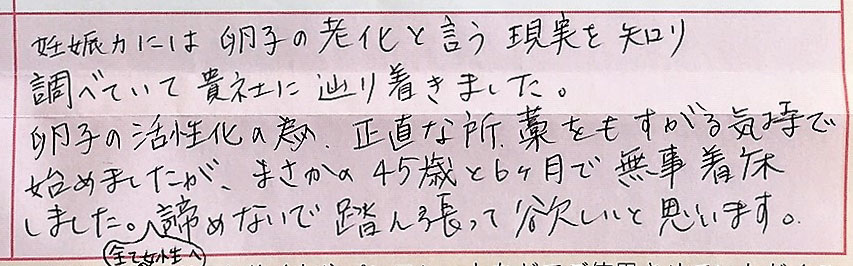 妊娠力には卵子の老化と言う現実を知り
調べていて貴社に辿り着きました。
卵子の活性化の為、正直な所、藁をもすがる気持で
始めましたが、まさかの45歳と6ヶ月で無事着床
しました。諦めないで踏ん張って欲しいと思います。
全て女性へ